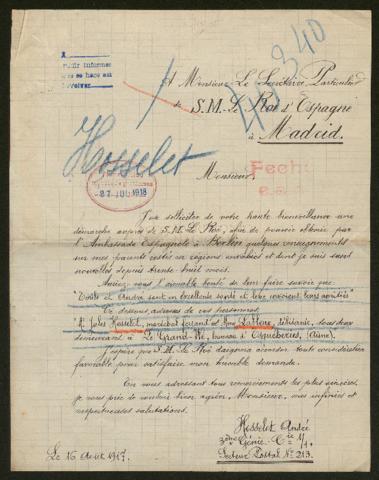 A Monsieur Le Secrétaire Particulier
de S.M. Le Roi d'Espagne
à Madrid.
48940
Hosselet
27 JUL 1918
Fecho
Monsieur,
J'ose solliciter de votre haute bienveillance une
démarche auprès de S.M. Le Roi, afin de pouvoir obtenir par
l'Ambassade Espagnole à Berlin quelques renseignements
sur mes parents restés en régions envahies et dont je suis sans
nouvelles depuis trente-huit mois.
Auriez-vous l'aimable bonté de leur faire savoir que
"Toute et André sont en excellente santé et leur envoient leurs amitiés"
Ci-dessous adresses de ces personnes
"M. Jules Hosselet, maréchal ferrant et Mme Lallène, débitante, tous deux
demeurant à Le Grand-Wé, hameau d'Esquéheries, (Aisne).
J'espère que S.M. Le Roi daignera accorder toute considération
favorable pour satisfaire mon humble demande.
En vous adressant tous remerciements les plus sincères,
je vous prie de vouloir bien agréer, Monsieur, mes infinies et
respectueuses salutations.
Hosselet André
3ème Génie - Cie
Secteur Postal No 213.
Le 16 Août 1917.